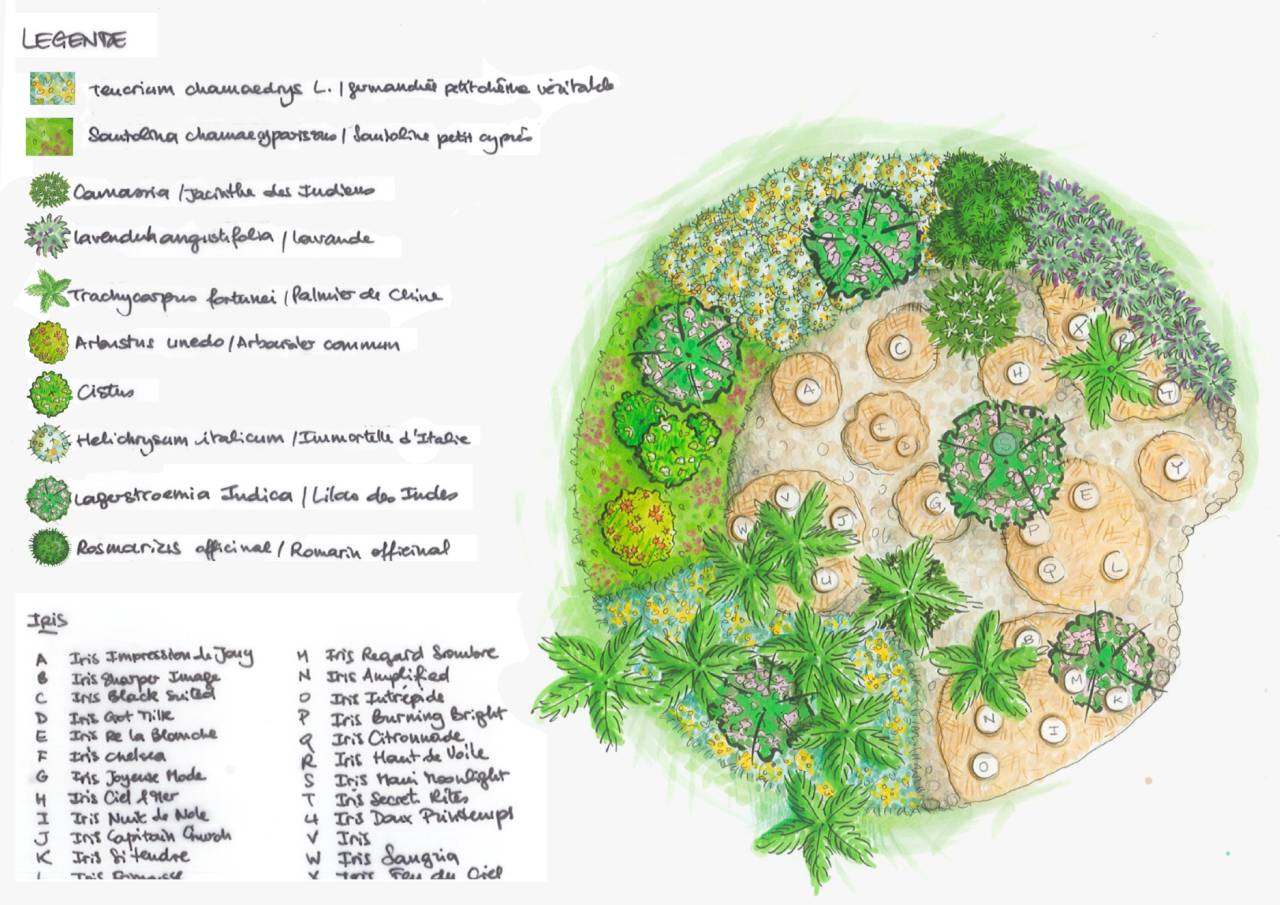 LEGENDE
Teucrium chamaedrys L. / germandrée petit chêne véritable
Santolina chamaecyparissus / Santoline petit cyprès
Camassia / Jacinthe des Indiens
lavendula angustifolia / Lavande
Trachycarpus fortunei / Palmier de Chine
Arbustus unedo / Arbousier commun
Cistus
Helichrysum italicum / Immortelle d'Italie
Lagerstroemia Indica / Lilas des Indes
Rosmarizis officinal / Romarin officinal
Iris
A Iris Impression de Jouy
B Iris Sharper Image
C Iris Black Suited
D Iris Got Milk
E Iris Re la Blanche
F Iris Chelsea
G Iris Joyeuse Mode
H Iris Ciel & Mer
I Iris Nuit de Nole
J Iris Capitain Church
K Iris Si tendre
L Iris
M Iris Regard Sombre
N Iris Amplified
O Iris Intrépide
P Iris Burning Bright
Q Iris Citronnade
R Iris Haut de Voile
S Iris Maui Moonlight
T Iris Secret Rites
U Iris Doux Printemps
V Iris
W Iris Sangria
X Iris Feu du Ciel
X
R
C
H
A
T
F
Y
V
E
G
W
J
P
Q
L
U
B
M
K
N
I
O